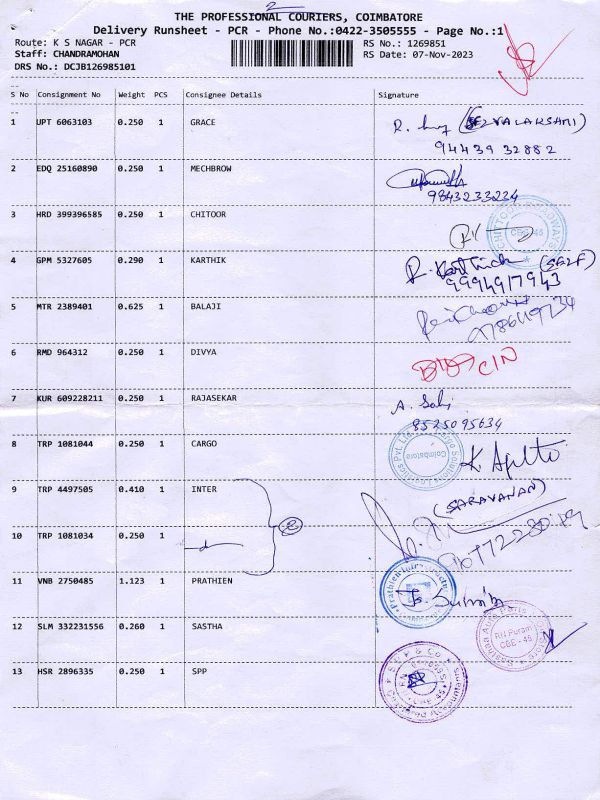 2
THE PROFESSIONAL COURIERS, COIMBATORE
Delivery Runsheet - PCR - Phone No.:0422-3505555 - Page No.:1
Route: K S NAGAR - PCR RS No.: 1269851
Staff: CHANDRAMOHAN RS Date: 07-Nov-2023
DRS No.: DCJB126985101
S No Consignment No Weight PCS Consignee Details Signature
1 UPT 6063103 0.250 1 GRACE
94439 32882
2 EDQ 25160890 0.250 1 MECHBROW
9843233234
3 HRD 399396585 0.250 1 CHITOOR
CBE-45
4 GPM 5327605 0.290 1 KARTHIK R. Karthick (SELF)
9994917943
5 MTR 2389401 0.625 1 BALAJI
6 RMD 964312 0.250 1 DIVYA
7 KUR 609228211 0.250 1 RAJASEKAR
8525095634
8 TRP 1081044 0.250 1 CARGO
Coimbatore
9 TRP 4497505 0.410 1 INTER (SARAVANAN)
10 TRP 1081034 0.250 1
11 VNB 2750485 1.123 1 PRATHIEN
12 SLM 332231556 0.260 1 SASTHA
CBE - 45
13 HSR 2896335 0.250 1 SPP